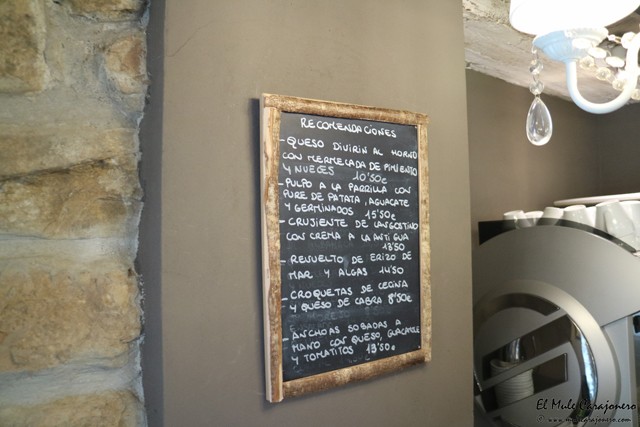 RECOMENDACIONES
- QUESO DIVIRIN AL HORNO
CON MERMELADA DE PIMIENTO
Y NUECES 10'50€
- PULPO A LA PARRILLA CON
PURE DE PATATA, AGUACATE
Y GERMINADOS 15'50€
- CRUJIENTE DE LANGOSTINO
CON CREMA A LA ANTIGUA
13'50
- REVUELTO DE ERIZO DE
MAR Y ALGAS 14'50
- CROQUETAS DE CECINA
Y QUESO DE CABRA 8'50€
- ANCHOAS SOBADAS A
MANO CON QUESO, GUACAMOLE
Y TOMATITOS 13'50€
El Mule Carajonero
© www.mulecarajonero.com